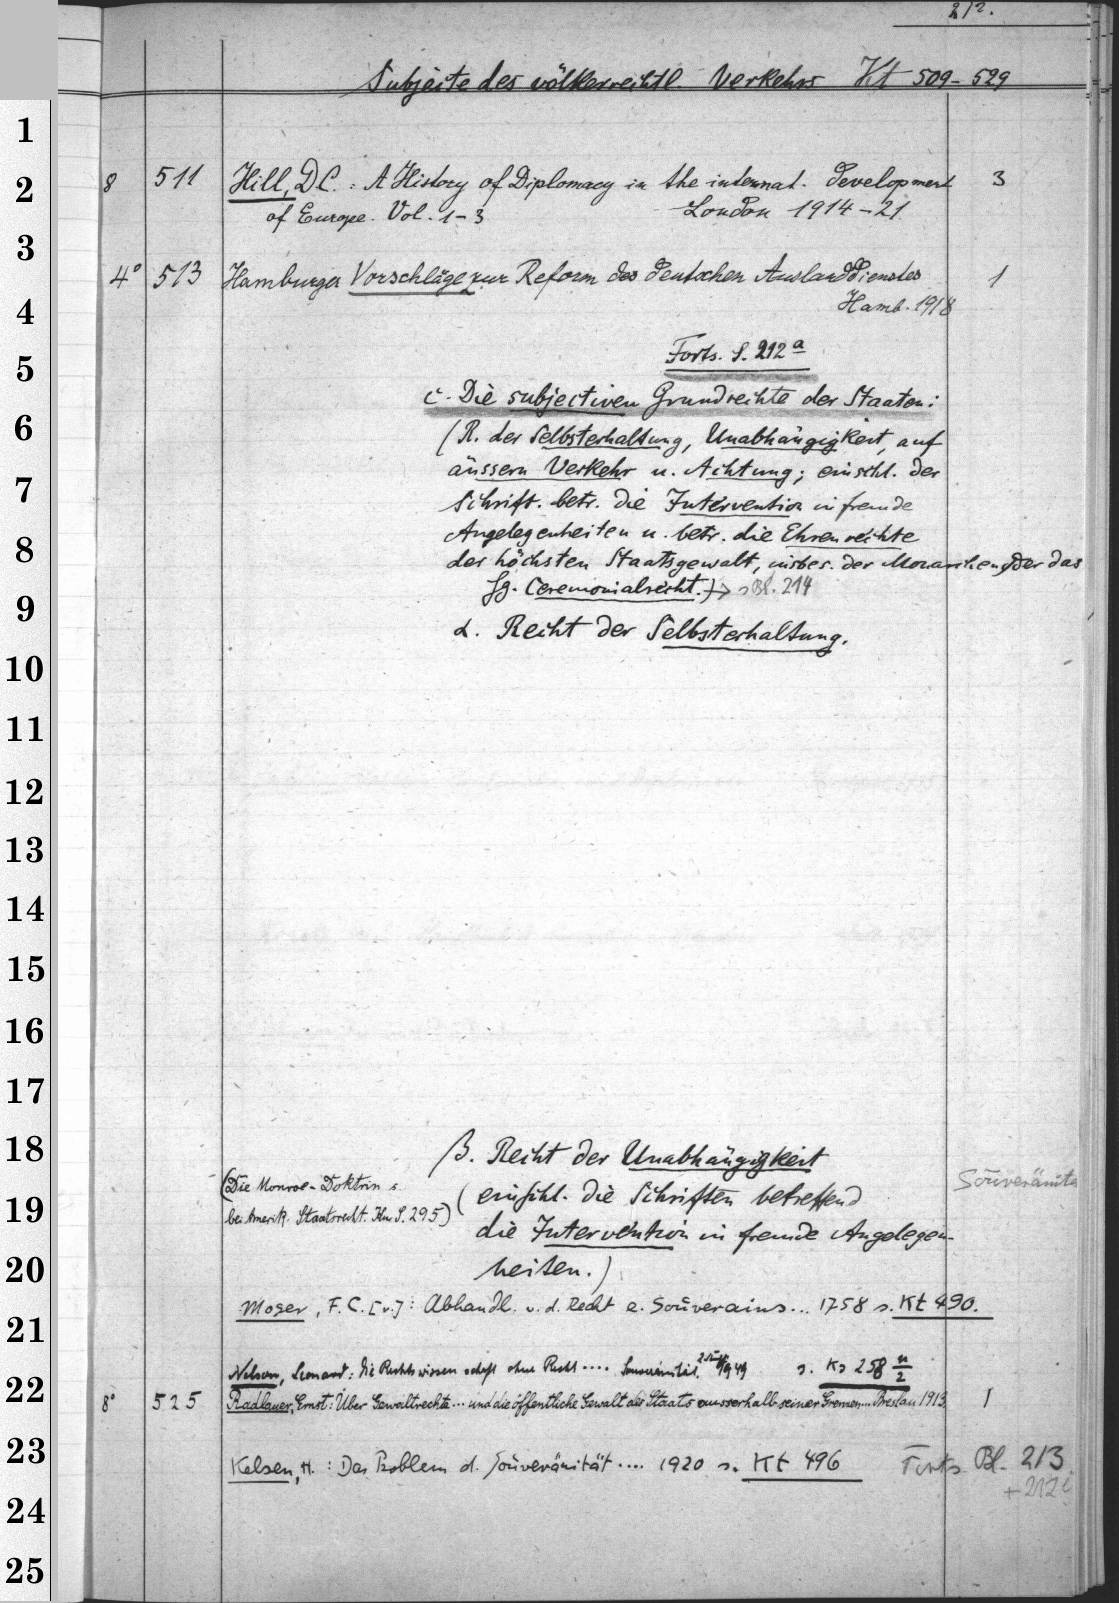 212.
Subjecte des völkerrechtl. Verkehrs Kt 509-529
1
2
3
4
5
6
7
8
9
10
11
12
13
14
15
16
17
18
19
20
21
22
23
24
25
8 511 Hill, D.C.: A History of Diplomacy in the internat. development 3
of Europe. Vol. 1-3 London 1914-21
4° 513 Hamburger Vorschläge zur Reform des deutschen Auslanddienstes 1
Hamb. 1918
Forts. S. 212a
c. Die subjectiven Grundrechte der Staaten:
(R. der Selbsterhaltung, Unabhängigkeit, auf
äussern Verkehr u. Achtung; einschl. der
Schrift. betr. die Intervention in fremde
Angelegenheiten u. betr. die Ehrenrechte
der höchsten Staatsgewalt, insbes. der Monarchen, oder das
sg. Ceremonialrecht.) → s Bl. 214
α. Recht der Selbsterhaltung.
β. Recht der Unabhängigkeit
(Die Monroe-Doktrin s.
bei Amerik. Staatsrecht. Km S. 295)
(einschl. die Schriften betreffend
die Intervention in fremde Angelegen-
heiten.)
Souveränitä
Moser, F.C. [v.]: Abhandl. v. d. Recht e. Souverains... 1758 s. Kt 490.
Nelson, Leonard: Die Rechtswissenschaft ohne Recht.... Souveränität. 1949 s. Ks 258 n/2
8° 525 Radlauer, Ernst: Über Gewaltrechte... und die öffentliche Gewalt des Staats ausserhalb seiner Grenzen... Breslau 1913 1
Kelsen, H.: Das Problem d. Souveränität.... 1920 s. Kt 496 Forts Bl. 213
+ 212